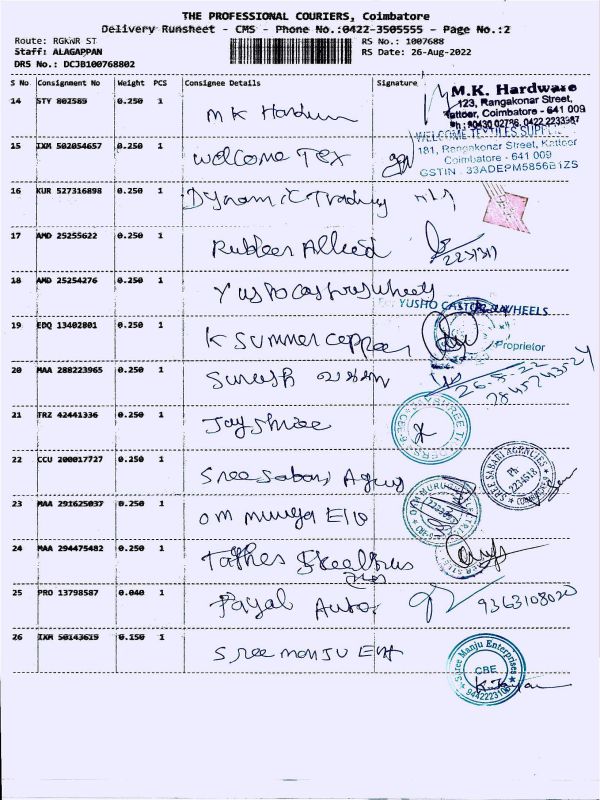 THE PROFESSIONAL COURIERS, Coimbatore
Delivery Runsheet - CMS - Phone No.:0422-3505555 - Page No.:2
Route: RGKNR ST
RS No.: 1007688
Staff: ALAGAPPAN
RS Date: 26-Aug-2022
DRS No.: DCJB100768802
S No. Consignment No Weight PCS Consignee Details Signature
14 STY 802589 0.250 1 M K Hardware
M.K. Hardware
123, Rangakonar Street,
Kattoor, Coimbatore - 641 009
15 IXM 502054657 0.250 1 Welcome Tex
WELCOME TEXTILES SUPPLIE
181, Rangakonar Street, Kattoor
Coimbatore - 641 009
GSTIN : 33ADEPM5856B1ZS
16 KUR 527316898 0.250 1 Dynamic Trading
17 AMD 25255622 0.250 1 Rubber Allied
18 AMD 25254276 0.250 1 Yusho castors wheels
YUSHO CASTOR WHEELS
19 EDQ 13402801 0.250 1 K Summer
Proprietor
20 MAA 288223965 0.250 1 Suresh
21 TRZ 42441336 0.250 1 Jayshree
22 CCU 200017727 0.250 1 Sree Sabari Agency
SREE SABARI AGENCIES
23 MAA 291625037 0.250 1 om muruga
24 MAA 294475482 0.250 1
25 PRO 13798587 0.040 1 Payal Autos
9363108020
26 IXM 50143619 0.150 1 Sree manju Ent
Sree Manju Enterprises
CBE